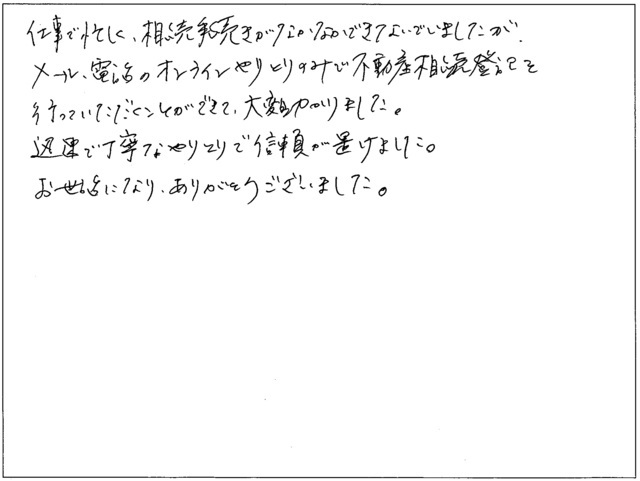 仕事で忙しく、相続手続きがなかなかできないでいましたが、
メール、電話のオンラインやりとりのみで不動産相続登記を
行っていただくことができて、大変助かりました。
迅速で丁寧なやりとりで信頼が置けました。
お世話になり、ありがとうございました。